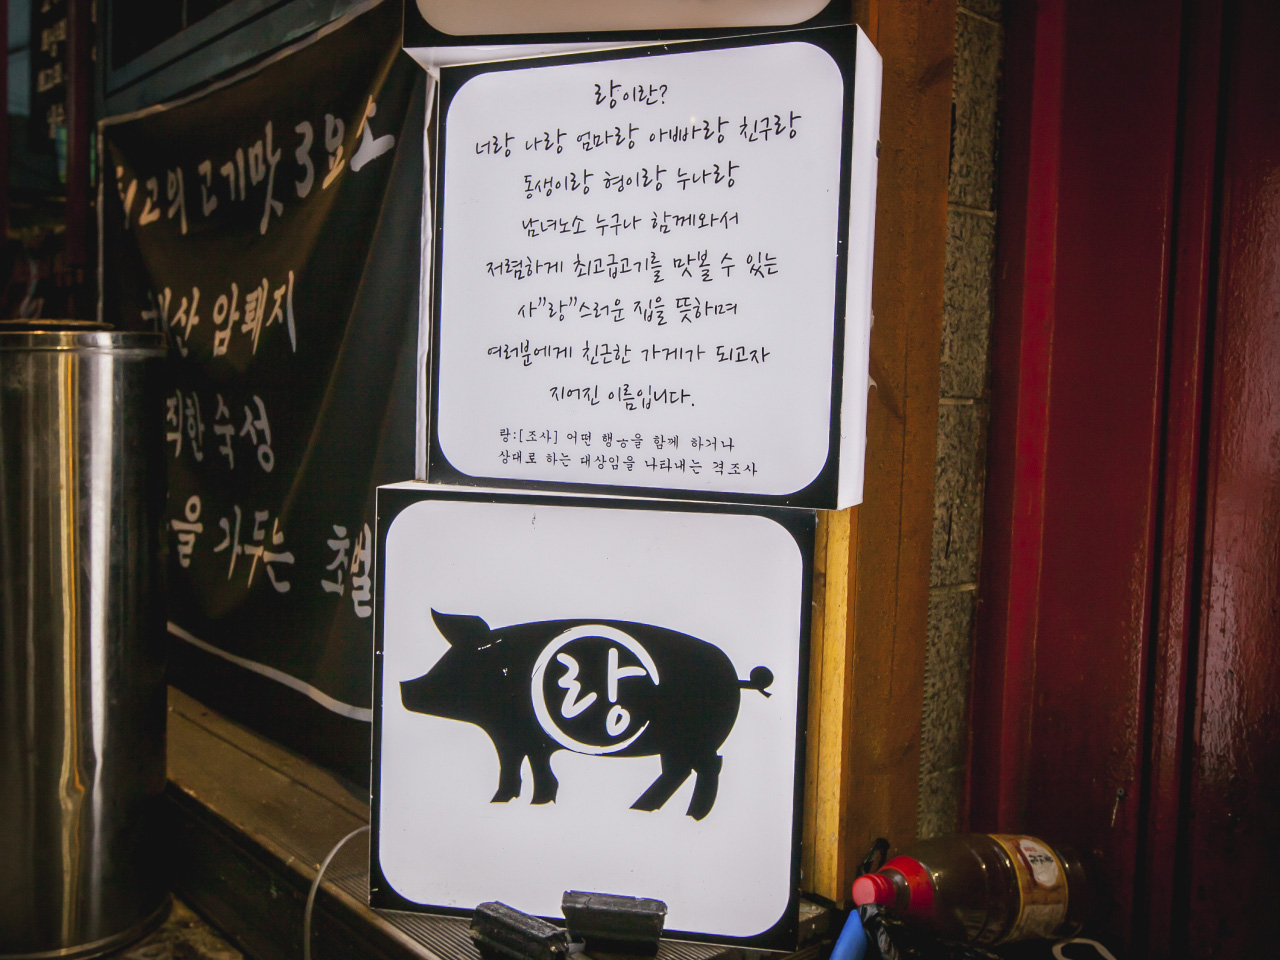 랑이란?
너랑 나랑 엄마랑 아빠랑 친구랑
동생이랑 형이랑 누나랑
남녀노소 누구나 함께와서
저렴하게 최고급고기를 맛볼 수 있는
사"랑"스러운 집을 뜻하며
여러분에게 친근한 가게가 되고자
지어진 이름입니다.
랑:[조사] 어떤 행동을 함께 하거나
상대로 하는 대상임을 나타내는 격조사
랑
최고의 고기맛 3요소
암퇘지
숙성
가두는 초벌